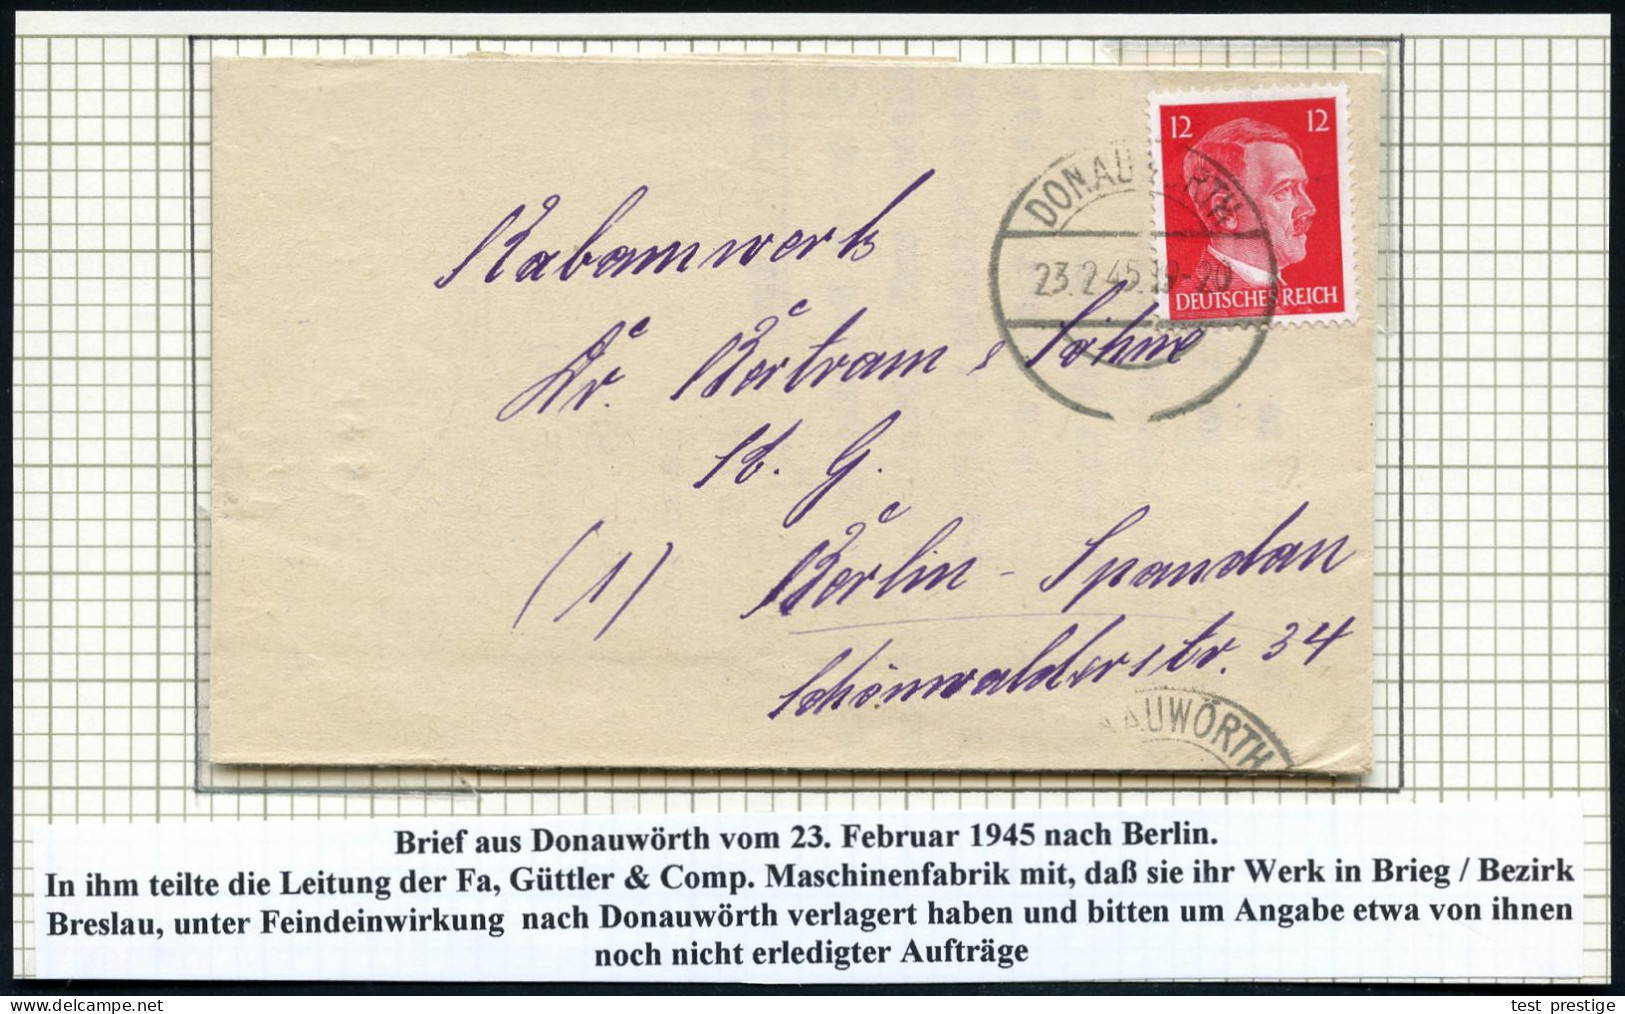 12 12
DEUTSCHES REICH
DONAUWÖRTH
23.2.45.19-20
Kabamwerk
Dr. Bertram & Söhne
K. G.
(1) Berlin - Spandau
Schönwalderstr. 34
NAUWÖRTH
Brief aus Donauwörth vom 23. Februar 1945 nach Berlin.
In ihm teilte die Leitung der Fa, Güttler & Comp. Maschinenfabrik mit, daß sie ihr Werk in Brieg / Bezirk
Breslau, unter Feindeinwirkung nach Donauwörth verlagert haben und bitten um Angabe etwa von ihnen
noch nicht erledigter Aufträge
test_prestige